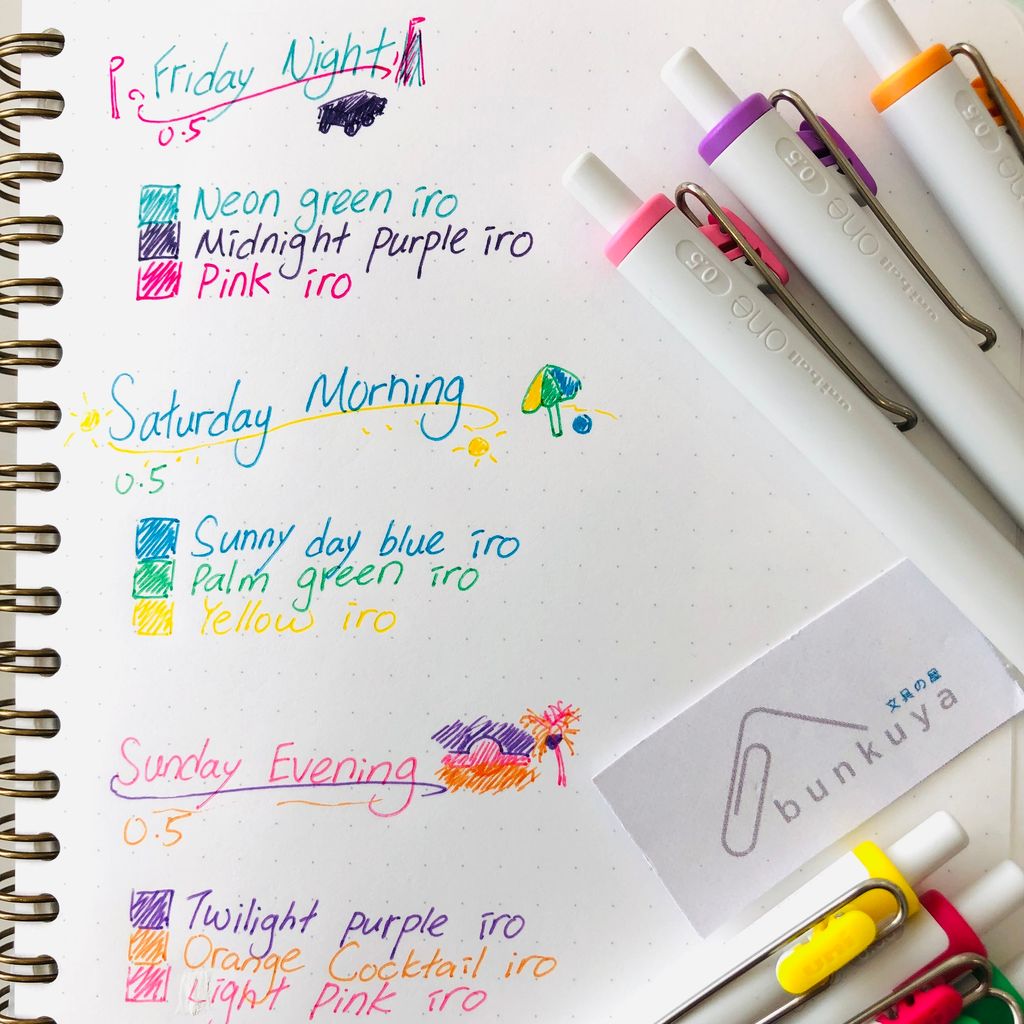 Friday Night
0.5
Neon green iro
Midnight purple iro
Pink iro
Saturday Morning
0.5
Sunny day blue iro
Palm green iro
Yellow iro
Sunday Evening
0.5
Twilight purple iro
Orange Cocktail iro
Light Pink iro
0.5
uniball One
0.5
uniball One
0.5
文具の屋
bunkuya